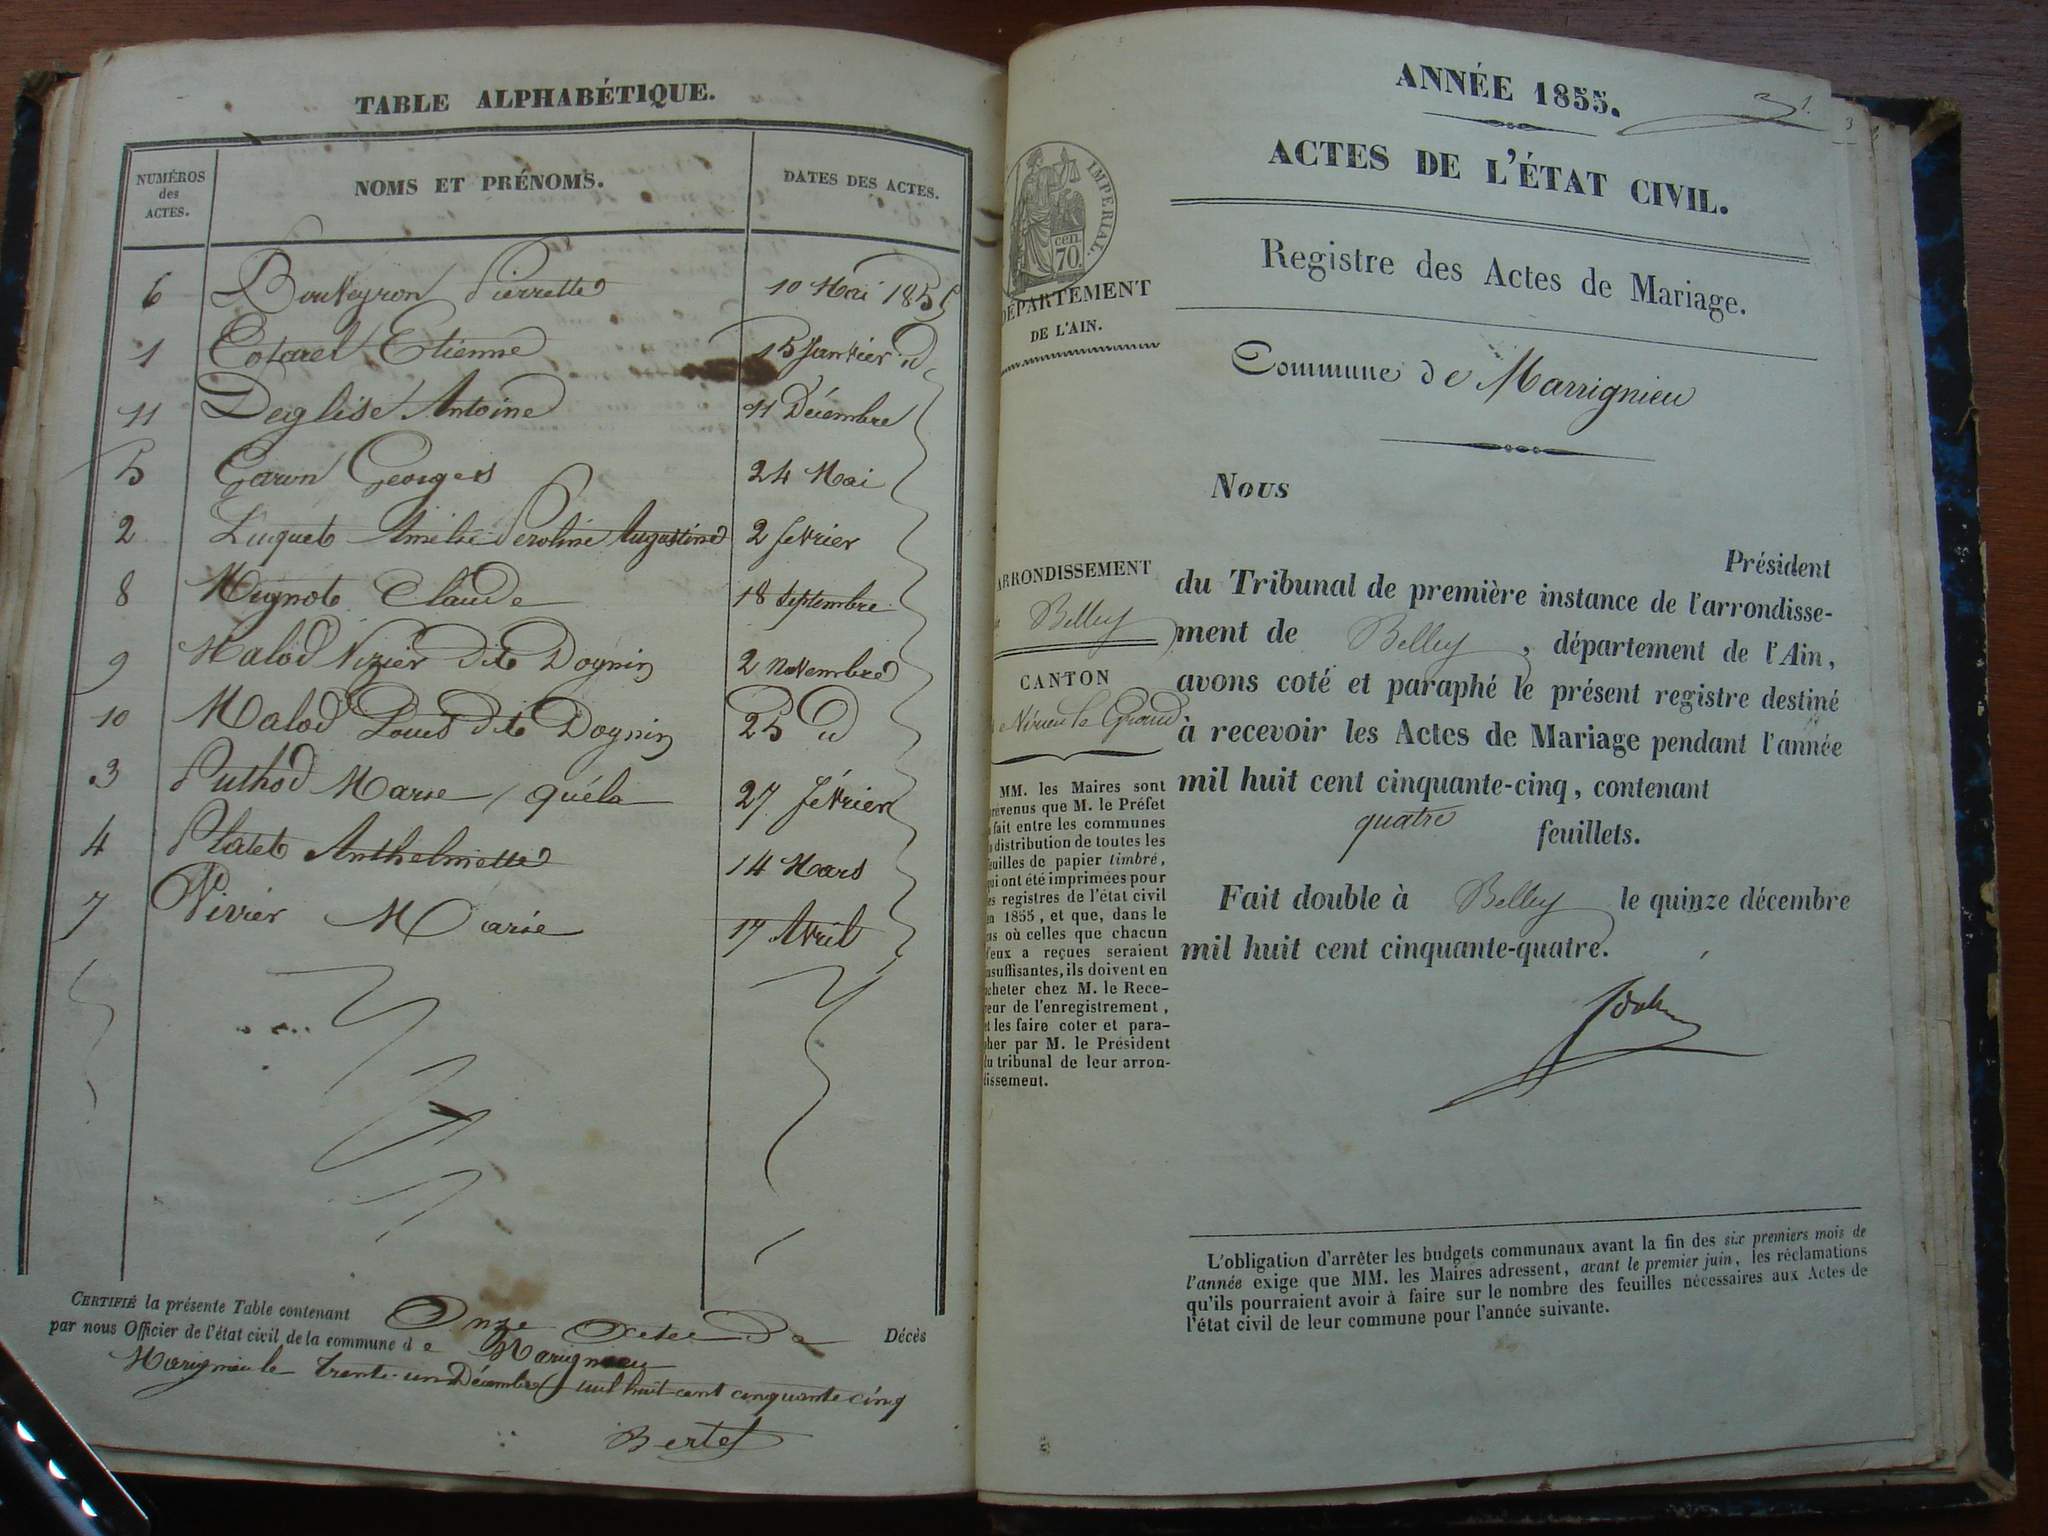 TABLE ALPHABÉTIQUE.
NUMÉROS des ACTES. NOMS ET PRÉNOMS. DATES DES ACTES.
6 Bouveyron Pierrette 10 Mai 1855
1 Cotarel Etienne 15 Janvier d
11 Deglise Antoine 11 Décembre
5 Caron Georges 24 Mai
2 Luquet Amélie Peroline Augustine 2 février
8 Mignot Claude 18 Septembre
9 Malod Vizier dit Dognin 2 Novembre
10 Malod Louis dit Dognin 25 d
3 Puthod Marie 27 février
4 Platet Anthelmette 14 Mars
7 Vivier Marie 17 Avril
CERTIFIÉ la présente Table contenant Onze Actes De Décès
par nous Officier de l'état civil de la commune d e Marignieu
Marignieu le trente-un Décembre mil huit cent cinquante cinq
Bertet
ANNÉE 1855.
1.
3
ACTES DE L'ÉTAT CIVIL.
IMPÉRIAL.
cen.
70.
Registre des Actes de Mariage.
DÉPARTEMENT
DE L'AIN.
Commune de Marrignieu
Nous
Président
du Tribunal de première instance de l'arrondisse-
ment de Belley, département de l'Ain,
avons coté et paraphé le présent registre destiné
à recevoir les Actes de Mariage pendant l'année
mil huit cent cinquante-cinq, contenant
quatre feuillets.
Fait double à Belley le quinze décembre
mil huit cent cinquante-quatre.
ARRONDISSEMENT
Belley
CANTON
e Virieu le Grand
MM. les Maires sont
prévenus que M. le Préfet
a fait entre les communes
la distribution de toutes les
feuilles de papier timbré,
qui ont été imprimées pour
les registres de l'état civil
en 1855, et que, dans le
cas où celles que chacun
d'eux a reçues seraient
insuffisantes, ils doivent en
acheter chez M. le Rece-
veur de l'enregistrement,
et les faire coter et para-
pher par M. le Président
du tribunal de leur arron-
dissement.
L'obligation d'arrêter les budgets communaux avant la fin des six premiers mois de
l'année exige que MM. les Maires adressent, avant le premier juin, les réclamations
qu'ils pourraient avoir à faire sur le nombre des feuilles nécessaires aux Actes de
l'état civil de leur commune pour l'année suivante.